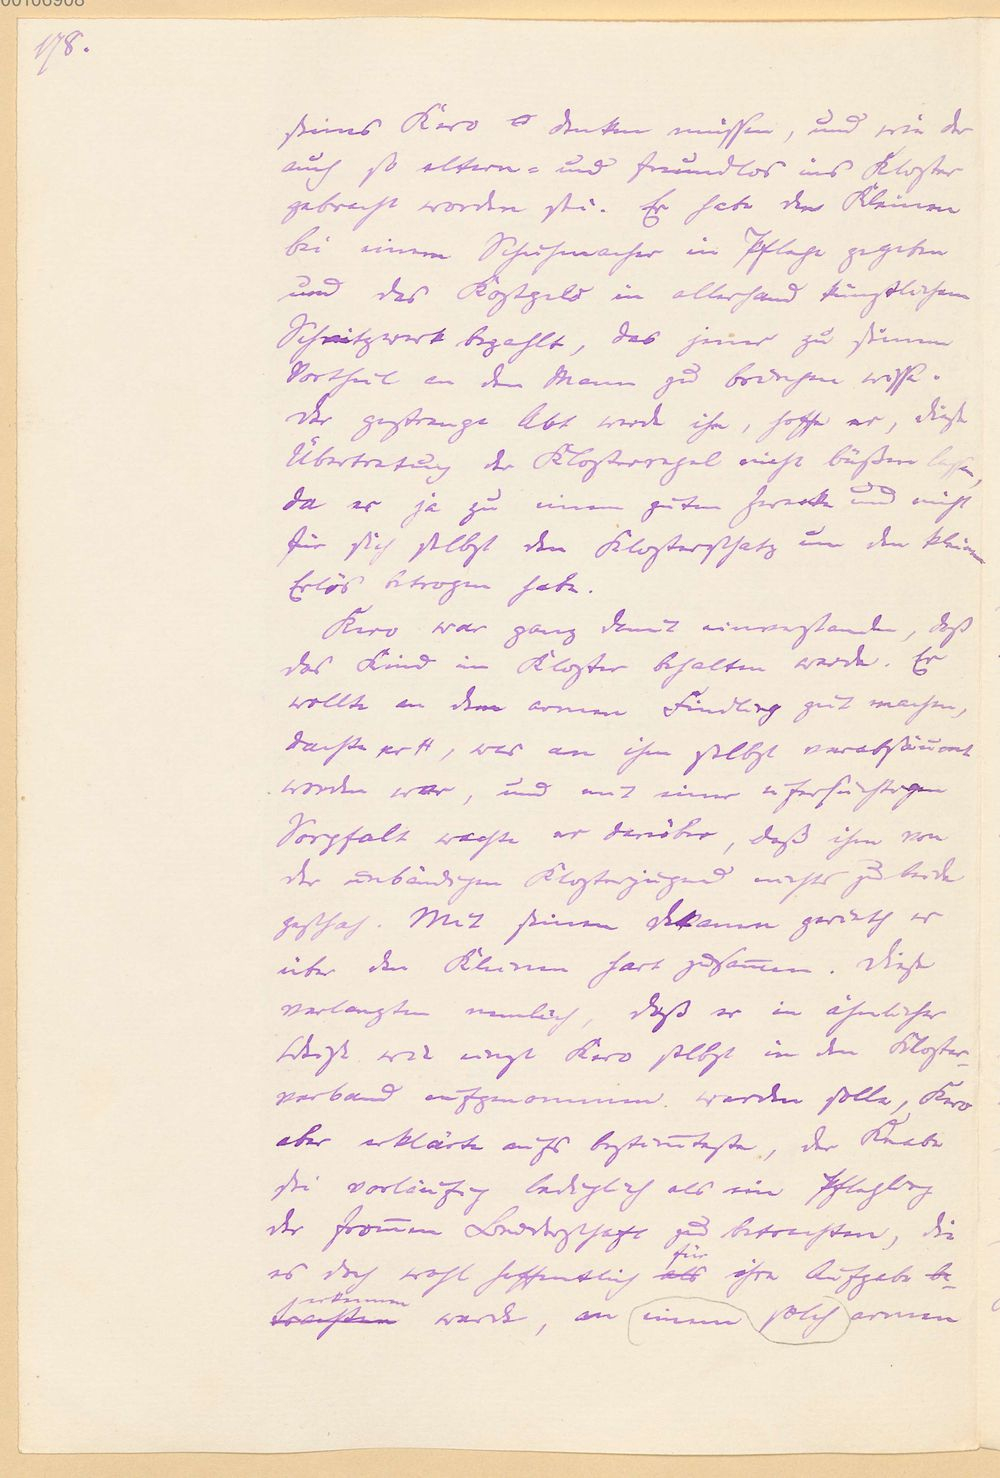 00106908
178.
seines Kero denken müssen, und wie der
auch so eltern- und freundlos ins Kloster
gebracht worden sei. Er habe den Kleinen
bei einem Schuhmacher in Pflege gegeben
und das Kostgeld in allerhand künstlichem
Schnitzwerk bezahlt, das jener zu seinem
Vortheil an den Mann zu bringen wisse.
Der gestrenge Abt werde ihn, hoffe er, diese
Übertretung der Klosterregel nicht büßen lassen,
da er ja zu einem guten Zwecke und nicht
für sich selbst den Klosterschatz um den kleinen
Erlös betrogen habe.
Kero war ganz damit einverstanden, daß
das Kind im Kloster behalten werde. Er
wollte an dem armen Findling gut machen,
dachte er, was an ihm selbst verabsäumt
worden war, und mit einer eifersüchtigen
Sorgfalt wachte er darüber, daß ihm von
der unbändigen Klosterjugend nichts zu leide
geschah. Mit seinen Dekanen gerieth er
über den Kleinen hart zusammen. Diese
verlangten nemlich, daß er in ähnlicher
Weise wie einst Kero selbst in den Kloster-
verband aufgenommen werden solle, Kero
aber erklärte aufs bestimmteste, der Knabe
sei vorläufig lediglich als ein Pflegling
der frommen Bruderschaft zu betrachten, die
es doch wohl hoffentlich als für ihre Aufgabe be-
trachten erkennen werde, an einem solch armen